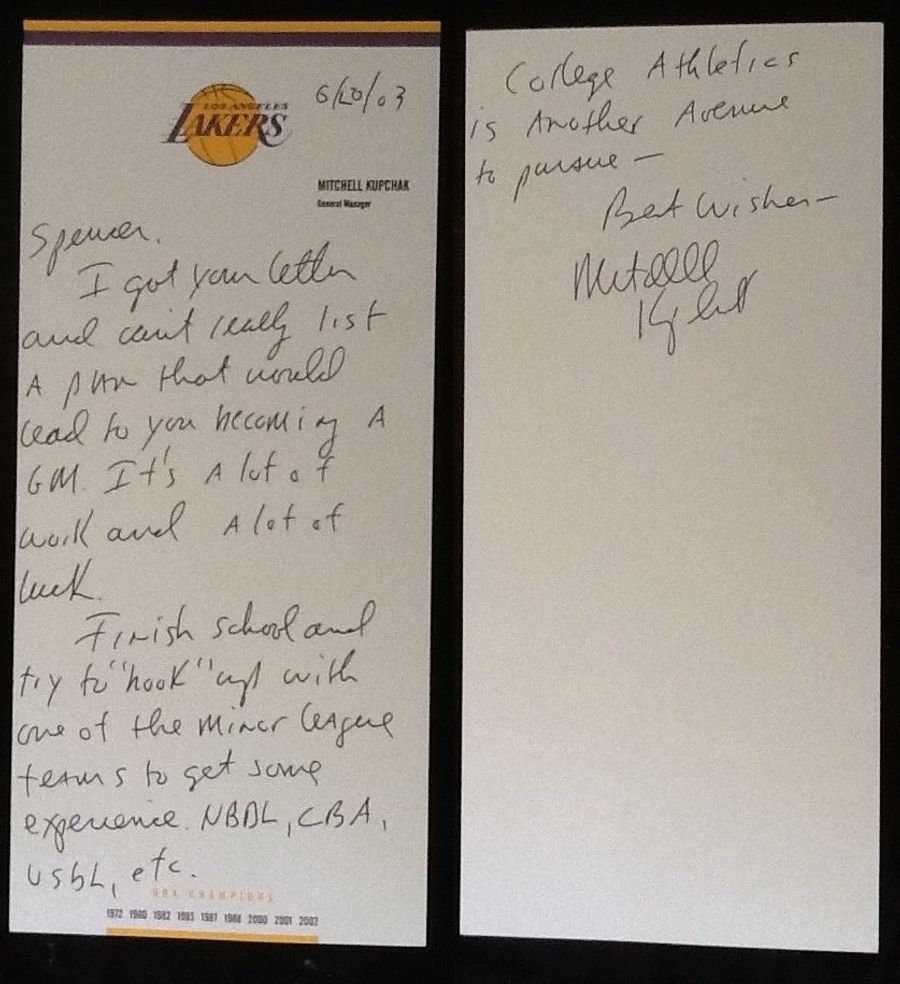 LOS ANGELES
LAKERS
6/20/03
MITCHELL KUPCHAK
General Manager
Spencer,
I got your letter
and can't really list
A plan that would
lead to you becoming A
GM. It's A lot of
work and A lot of
luck.
Finish school and
try to "hook" up with
one of the minor league
teams to get some
experience. NBDL, CBA,
USBL, etc.
NBA CHAMPIONS
1972 1980 1982 1985 1987 1988 2000 2001 2002
College Athletics
is Another Avenue
to pursue —
Best Wishes —
Mitchell
Kupchak